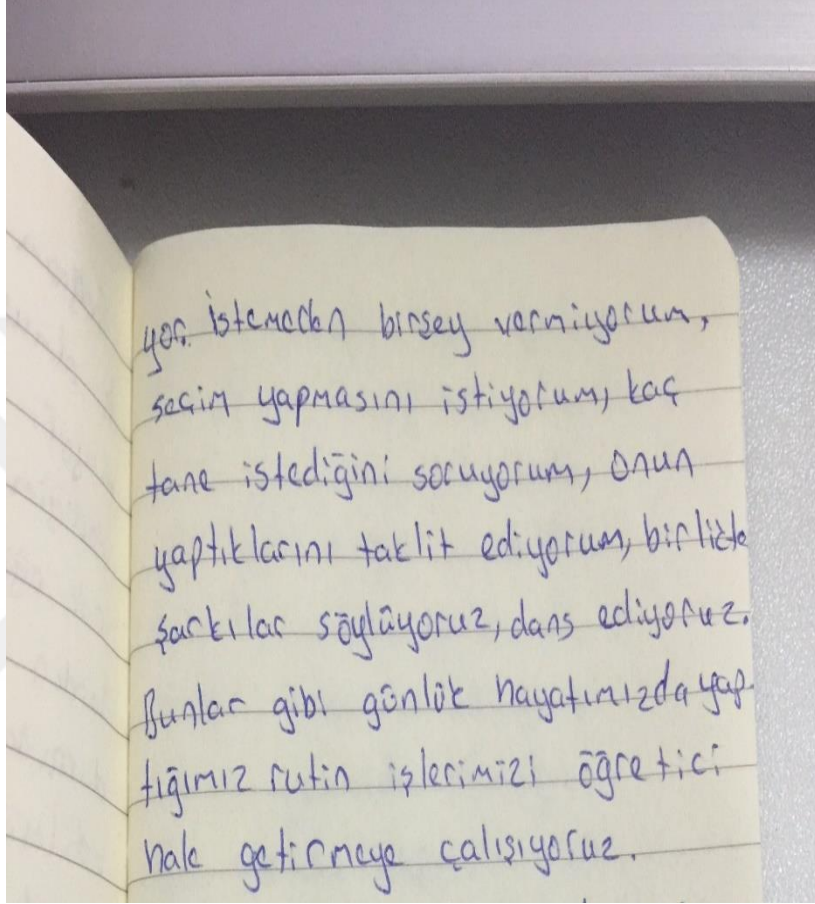 yor. İstemeden birşey vermiyorum,
seçim yapmasını istiyorum, kaç
tane istediğini soruyorum, onun
yaptıklarını taklit ediyorum, birlikte
şarkılar söylüyoruz, dans ediyoruz.
Bunlar gibi günlük hayatımızda yap-
tığımız rutin işlerimizi öğretici
hale getirmeye çalışıyoruz.